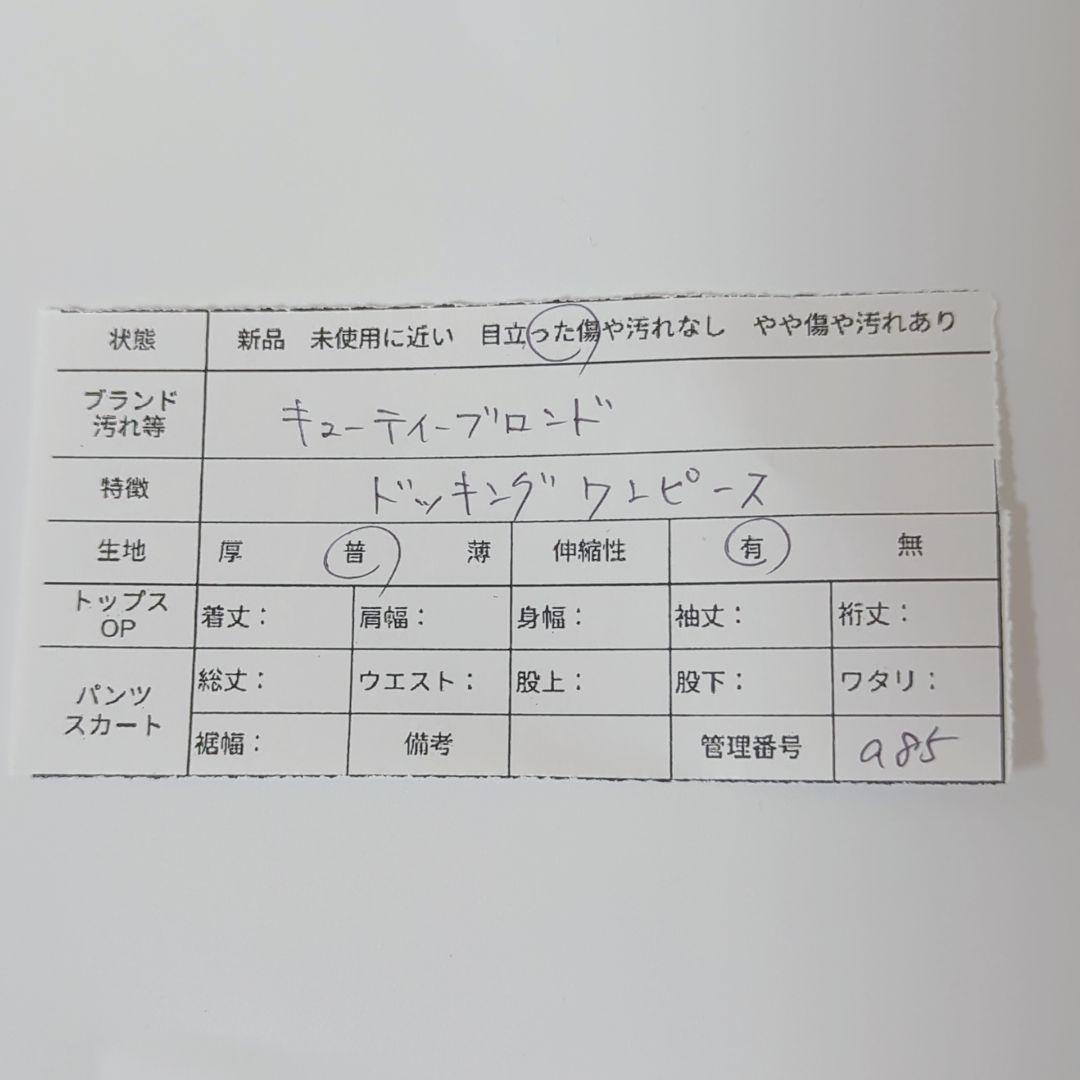 状態 新品 未使用に近い 目立った傷や汚れなし やや傷や汚れあり
ブランド
汚れ等
キューティーブロンド
特徴 ドッキングワンピース
生地 厚 普 薄 伸縮性 有 無
トップス
OP
着丈： 肩幅： 身幅： 袖丈： 裄丈：
パンツ
スカート
総丈： ウエスト： 股上： 股下： ワタリ：
裾幅： 備考 管理番号 a85